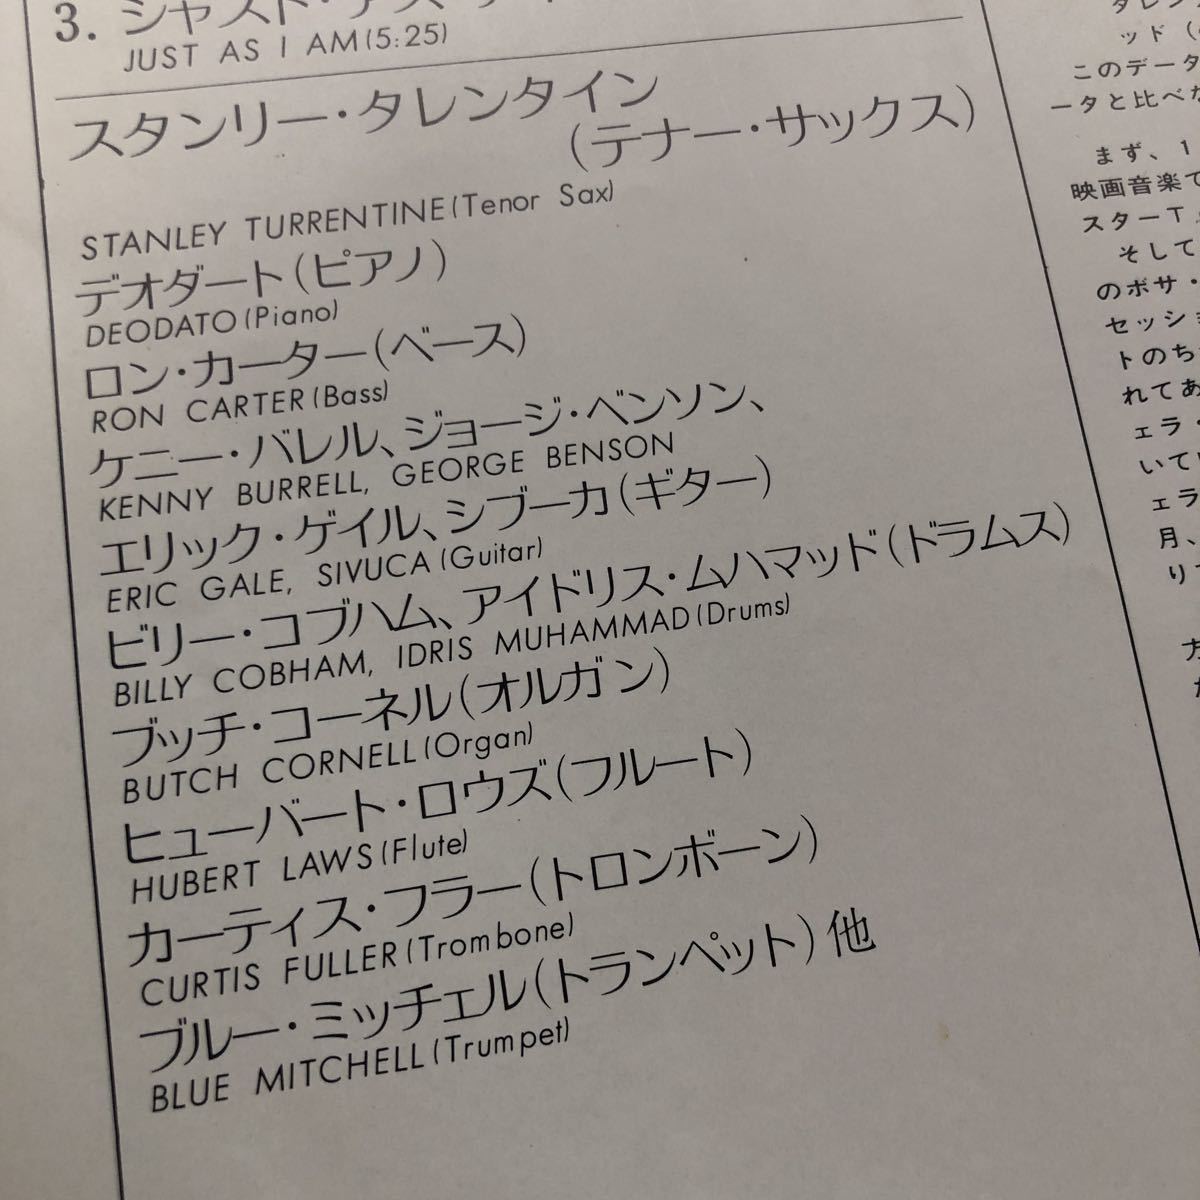 3. ジャスト・アズ・
JUST AS I AM(5:25)
スタンリー・タレンタイン
(テナー・サックス)
STANLEY TURRENTINE(Tenor Sax)
デオダート(ピアノ)
DEODATO(Piano)
ロン・カーター(ベース)
RON CARTER(Bass)
ケニー・バレル、ジョージ・ベンソン、
KENNY BURRELL, GEORGE BENSON
エリック・ゲイル、シブーカ(ギター)
ERIC GALE, SIVUCA(Guitar)
ビリー・コブハム、アイドリス・ムハマッド(ドラムス)
BILLY COBHAM, IDRIS MUHAMMAD(Drums)
ブッチ・コーネル(オルガン)
BUTCH CORNELL(Organ)
ヒューバート・ロウズ(フルート)
HUBERT LAWS(Flute)
カーティス・フラー(トロンボーン)
CURTIS FULLER(Trombone)
ブルー・ミッチェル(トランペット)他
BLUE MITCHELL(Trumpet)
タレン
ッド(
このデータ
ータと比べな
まず、1
映画音楽で
スターT
そして
のボサ・
セッショ
トのち
れてあ
ェラ・
いてい
ェラ
月、
りて
方